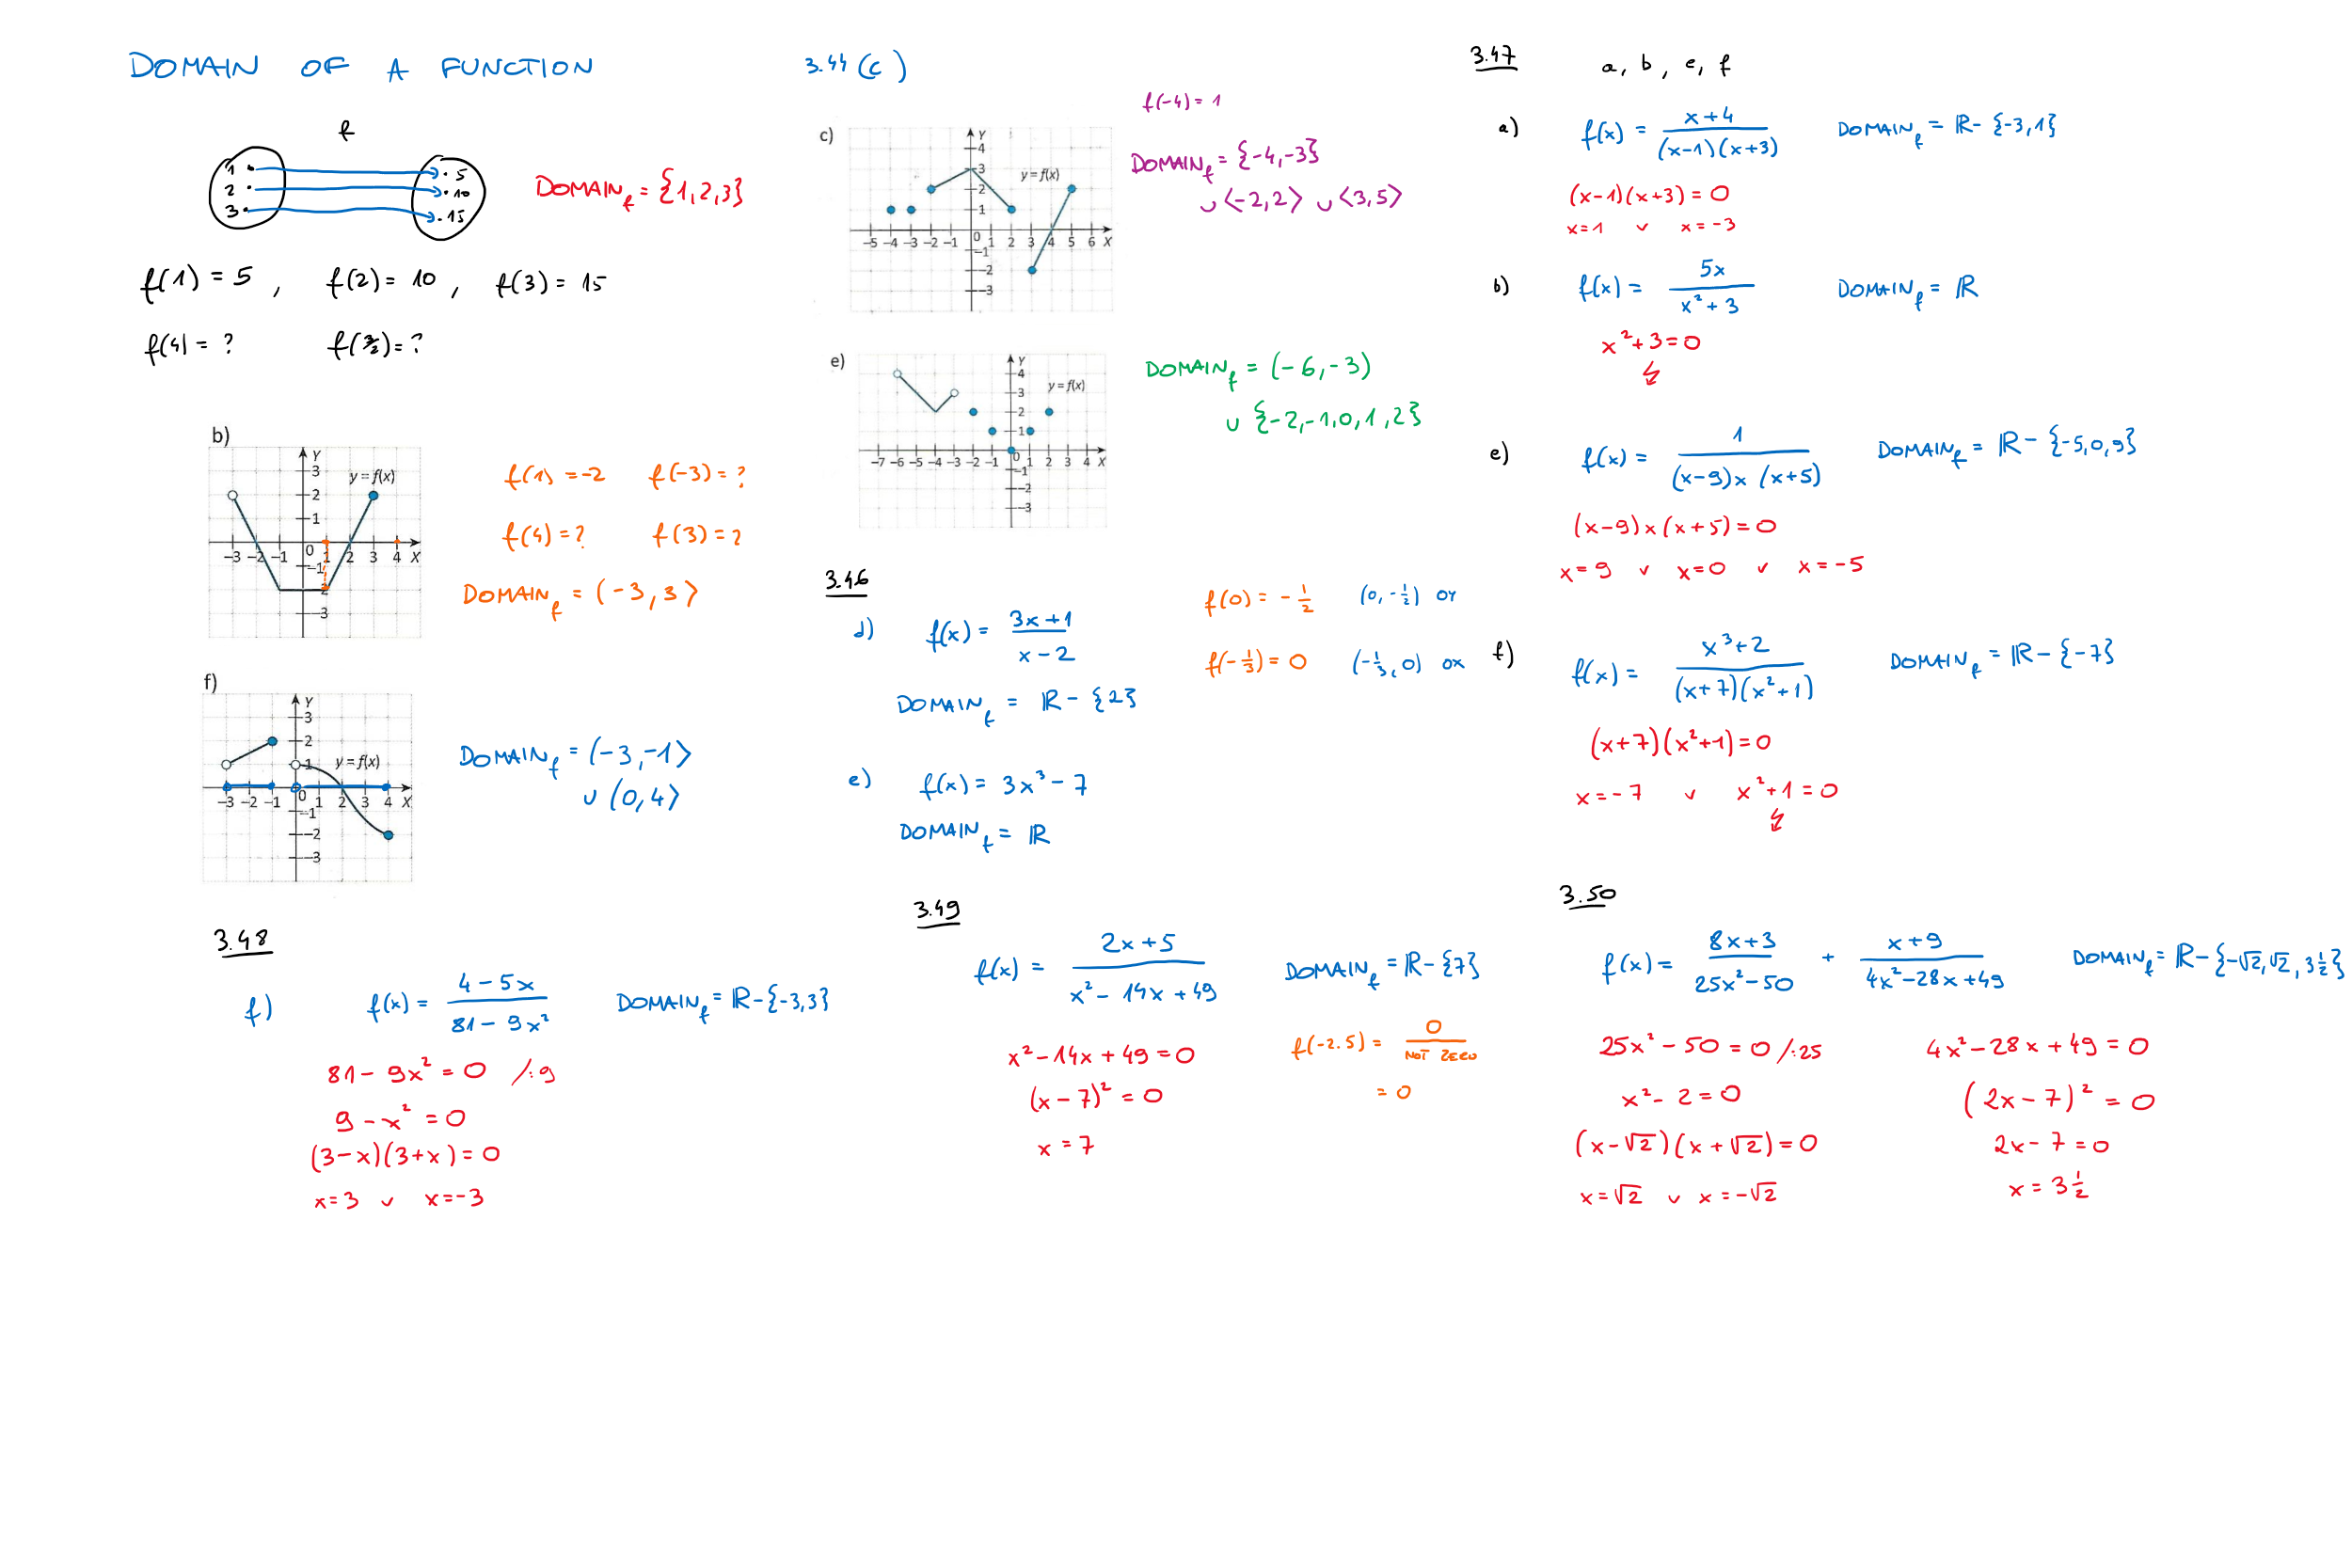 DOMAIN OF A FUNCTION
f
1 5
2 10
3 15
DOMAIN_f = {1,2,3}
f(1) = 5 , f(2) = 10 , f(3) = 15
f(4) = ? f(3/2) = ?
b)
Y
y = f(x)
3
2
1
-3 -2 -1 0 1 2 3 4 X
-1
-2
-3
f(1) = -2 f(-3) = ?
f(4) = ? f(3) = ?
DOMAIN_f = (-3, 3⟩
f)
Y
3
2
1
y = f(x)
-3 -2 -1 0 1 2 3 4 X
-1
-2
-3
DOMAIN_f = (-3, -1⟩
∪ (0, 4⟩
3.44 (c)
f(-4) = 1
c)
Y
4
3
y = f(x)
2
1
-5 -4 -3 -2 -1 0 1 2 3 4 5 6 X
-1
-2
-3
DOMAIN_f = {-4,-3}
∪ ⟨-2,2⟩ ∪ ⟨3,5⟩
e)
Y
4
y = f(x)
3
2
1
-7 -6 -5 -4 -3 -2 -1 0 1 2 3 4 X
-1
-2
-3
DOMAIN_f = (-6,-3)
∪ {-2,-1,0,1,2}
3.46
d) f(x) = (3x+1)/(x-2)
f(0) = -1/2 (0, -1/2) oy
f(-1/3) = 0 (-1/3, 0) ox
DOMAIN_f = ℝ - {2}
e) f(x) = 3x³ - 7
DOMAIN_f = ℝ
3.47 a, b, e, f
a) f(x) = (x+4)/((x-1)(x+3)) DOMAIN_f = ℝ - {-3,1}
(x-1)(x+3) = 0
x=1 ∨ x=-3
b) f(x) = 5x/(x²+3) DOMAIN_f = ℝ
x²+3=0
↯
e) f(x) = 1/((x-9)x(x+5)) DOMAIN_f = ℝ - {-5,0,9}
(x-9)x(x+5) = 0
x=9 ∨ x=0 ∨ x=-5
f) f(x) = (x³+2)/((x+7)(x²+1)) DOMAIN_f = ℝ - {-7}
(x+7)(x²+1) = 0
x=-7 ∨ x²+1=0
↯
3.48
f) f(x) = (4-5x)/(81-9x²) DOMAIN_f = ℝ-{-3,3}
81-9x² = 0 /:9
9-x² = 0
(3-x)(3+x) = 0
x=3 ∨ x=-3
3.49
f(x) = (2x+5)/(x²-14x+49) DOMAIN_f = ℝ-{7}
x²-14x+49 = 0
(x-7)² = 0
x = 7
f(-2.5) = 0/NOT ZERO
= 0
3.50
f(x) = (8x+3)/(25x²-50) + (x+9)/(4x²-28x+49) DOMAIN_f = ℝ-{-√2,√2,3 1/2}
25x²-50 = 0 /:25
x²-2 = 0
(x-√2)(x+√2) = 0
x=√2 ∨ x=-√2
4x²-28x+49 = 0
(2x-7)² = 0
2x-7 = 0
x = 3 1/2